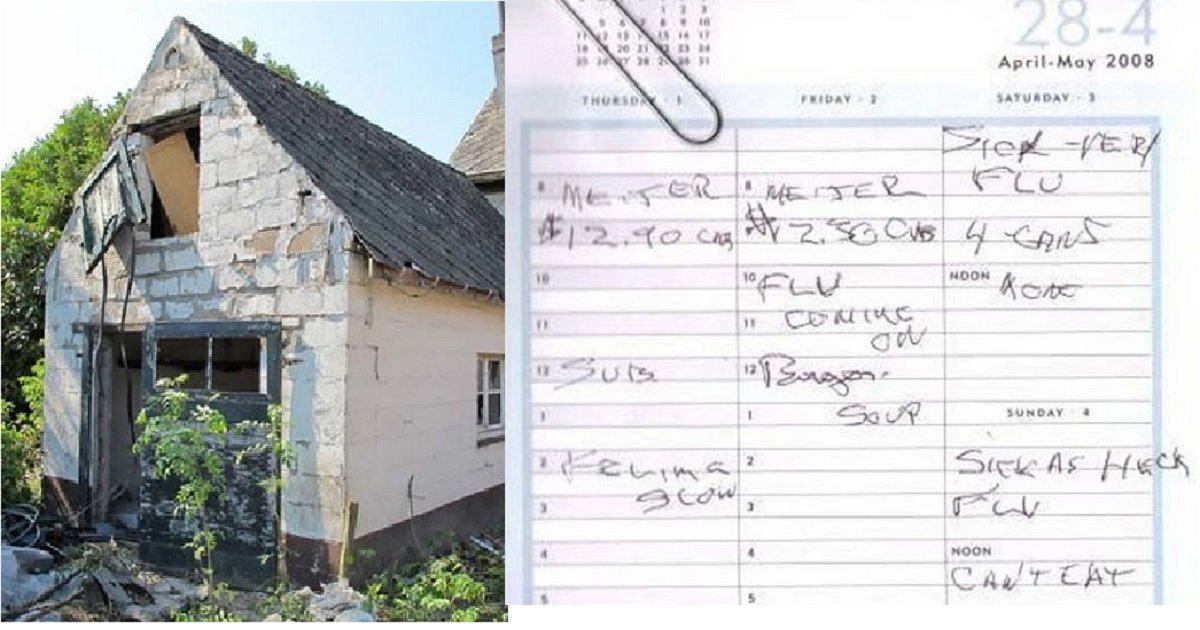 28-4
April-May 2008
THURSDAY - 1
FRIDAY - 2
SATURDAY - 3
SICK - VERY
FLU
8 MEIJER
8 MEIJER
$12.90 CAB
$12.50 CAB
4 CANS
10
10 FLU
NOON NONE
11
11 COMING
ON
12 SUB
12
1
1 SOUP
SUNDAY - 4
2 FEELING
2
SICK AS HECK
3 SLOW
3
FLU
4
4
NOON
CAN'T EAT
5
5